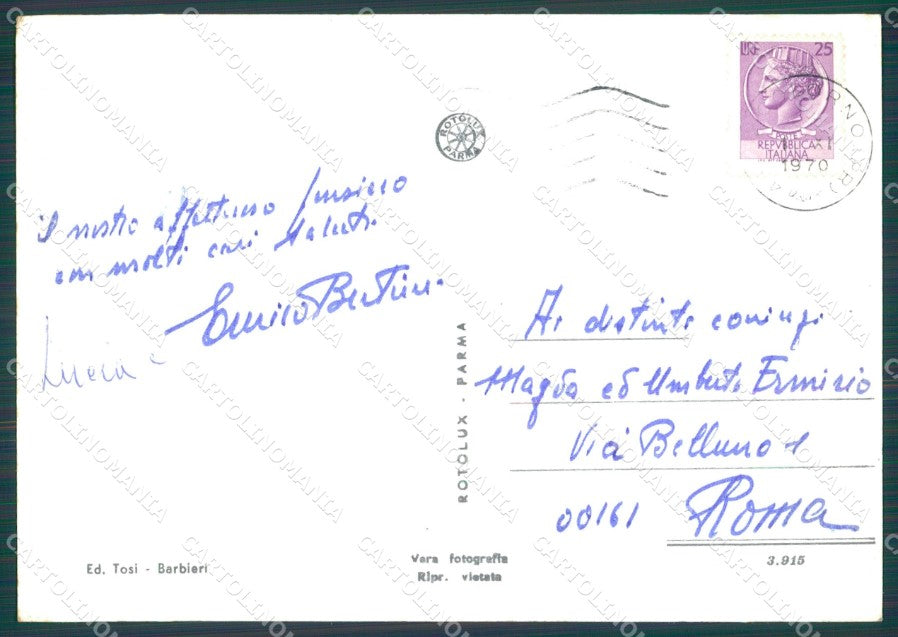 LIRE 25
REPVBBLICA
ITALIANA
1970
ROTOLUX
PARMA
il nostro affettuoso pensiero
con molti cari saluti.
Enrico Bertini.
Lucia e
Ai distinti coniugi
Magda ed Umberto Erminio
Via Belluno 1
00161 Roma
ROTOLUX - PARMA
Ed. Tosi - Barbieri
Vera fotografia
Ripr. vietata
3.915
CARTOLINOMANIA